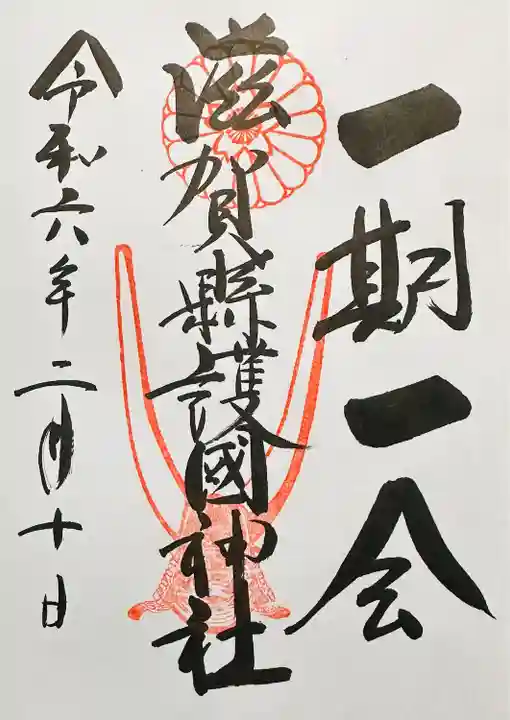 一期一会
滋賀縣護國神社
令和六年二月十日